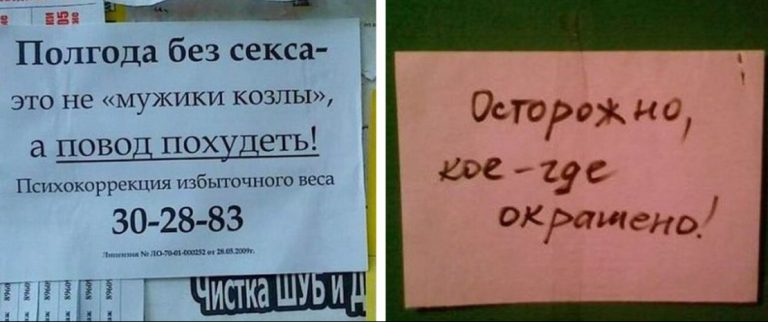 Полгода без секса-
это не «мужики козлы»,
а повод похудеть!
Психокоррекция избыточного веса
30-28-83
Лицензия № ЛО-70-01-000252 от 28.05.2009г.
Чистка ШУБ и Д
Осторожно,
кое-где
окрашено!